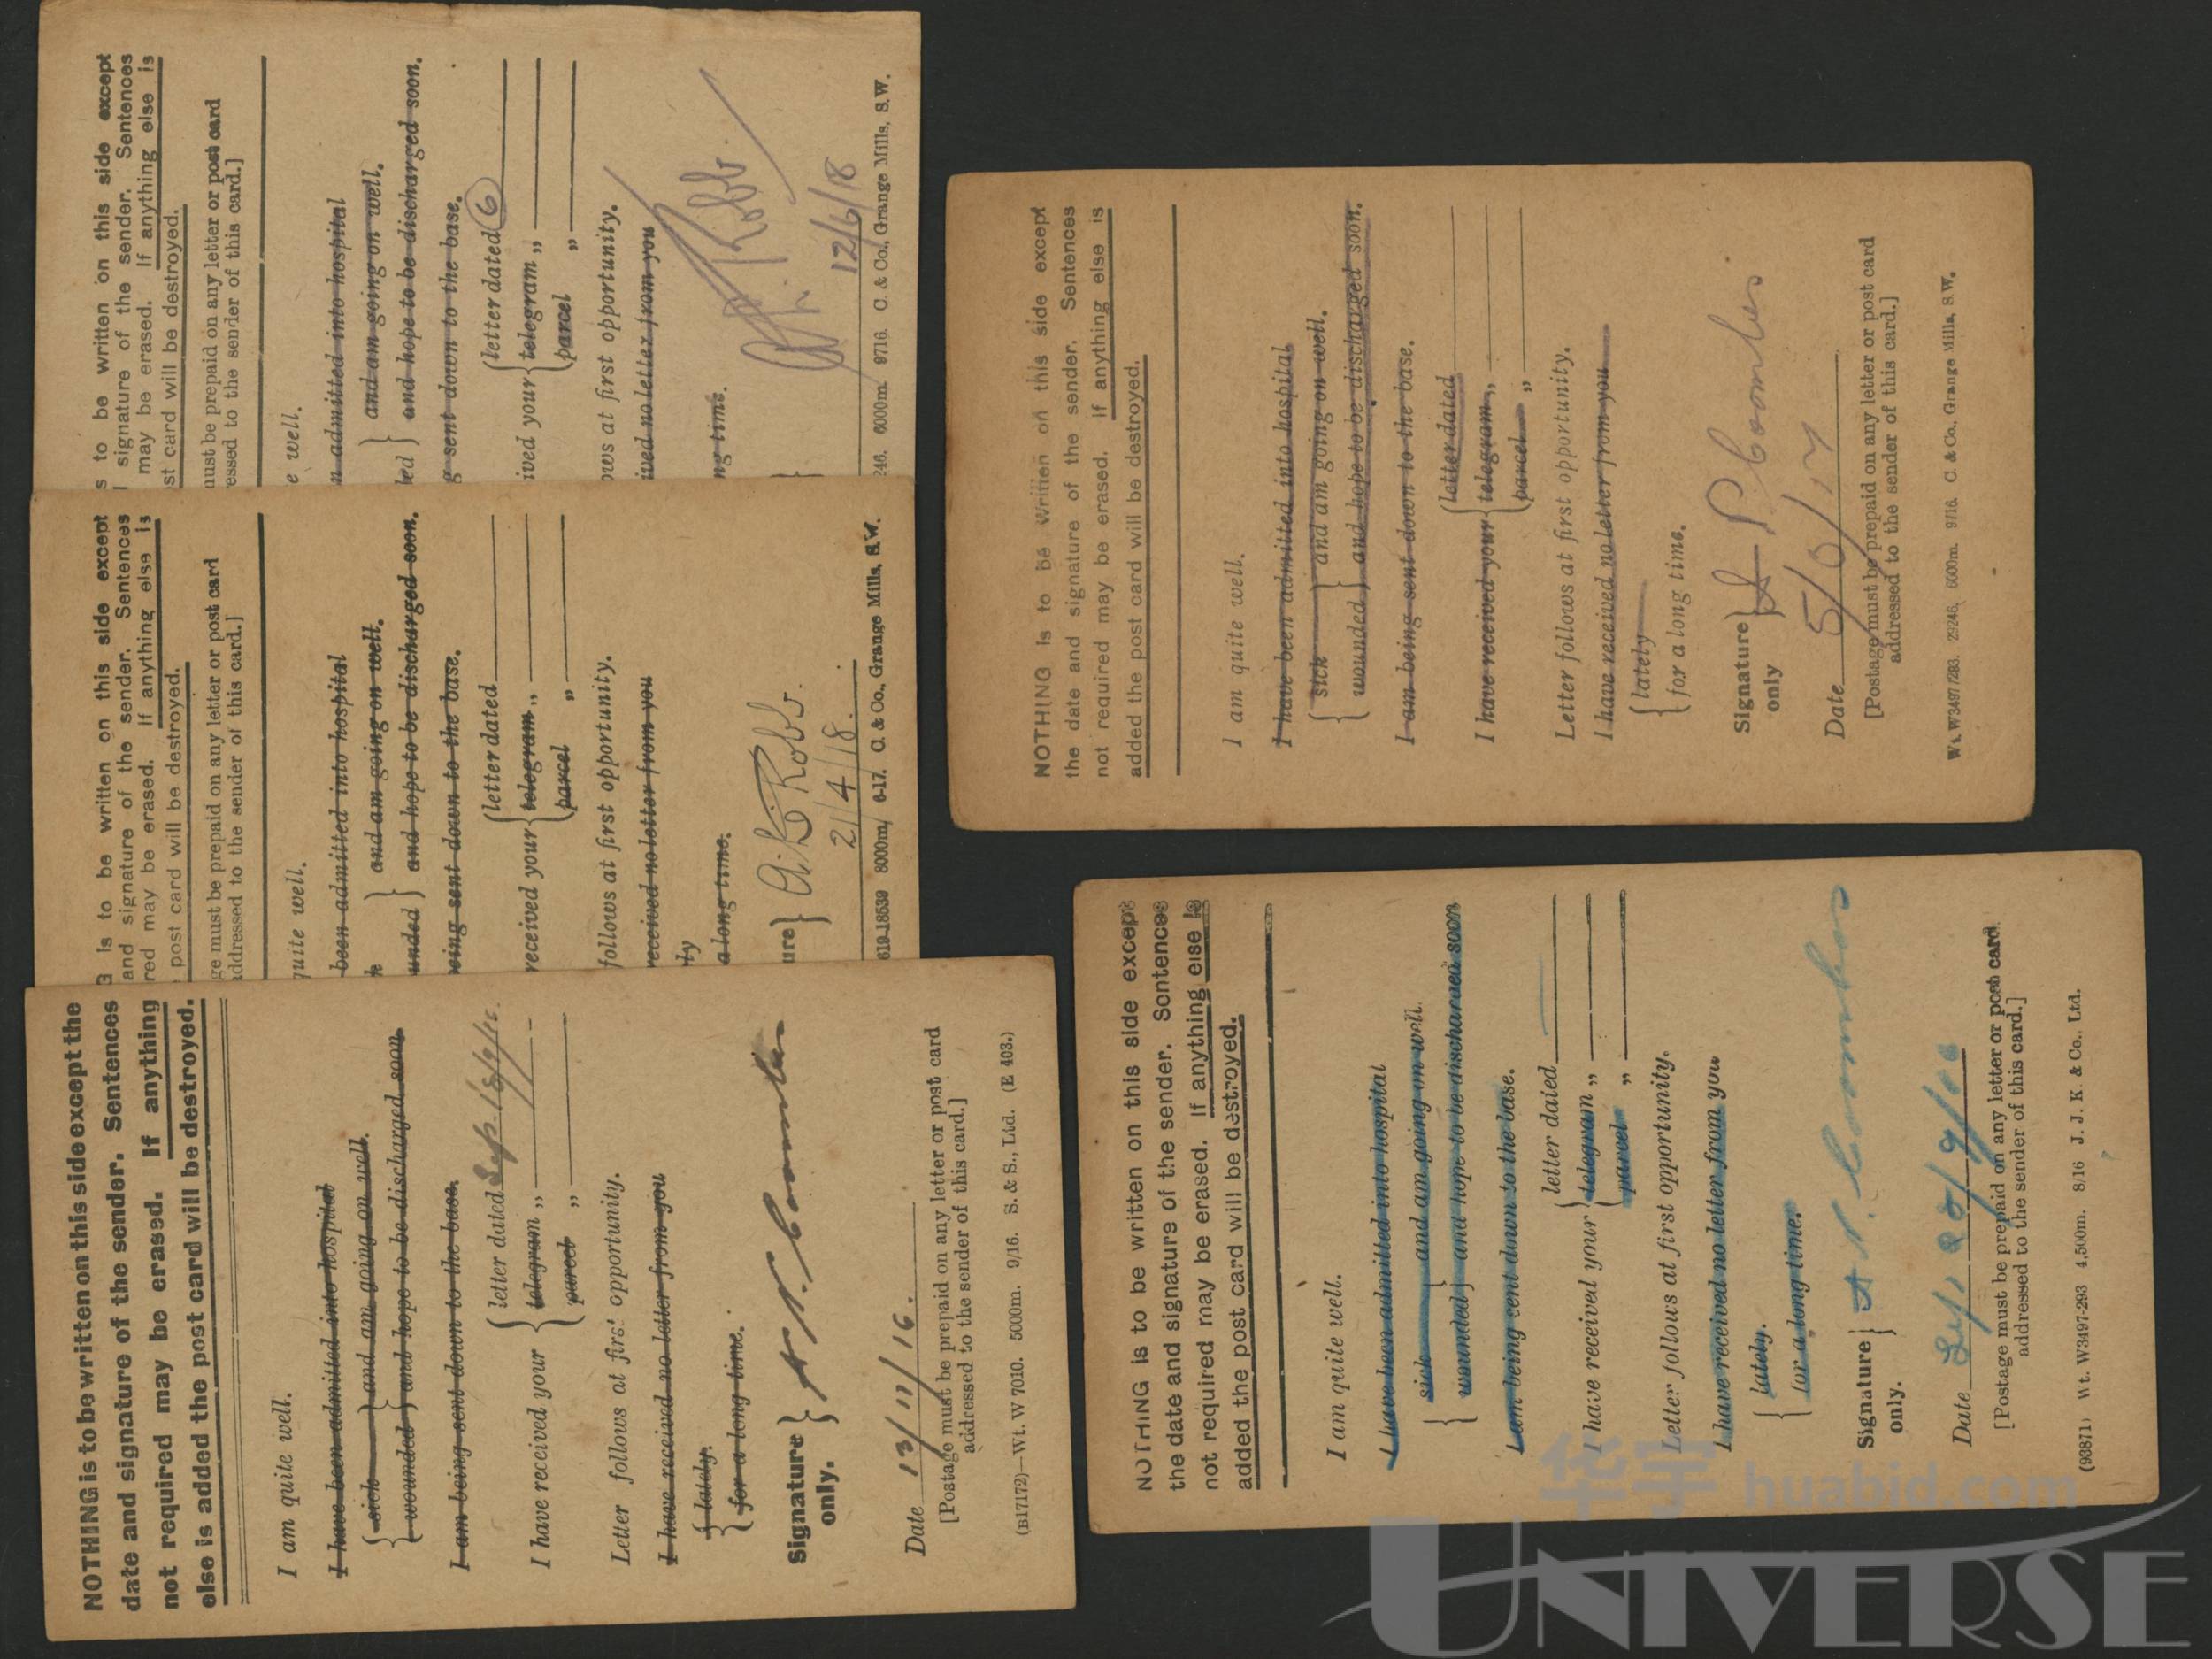 s to be written on this side except
signature of the sender. Sentences
may be erased. If anything else is
st card will be destroyed.
nust be prepaid on any letter or post card
ressed to the sender of this card.]
e well.
n admitted into hospital
and am going on well.
led } and hope to be discharged soon.
g sent down to the base.
letter dated 6
ived your { telegram ,,
parcel ,,
ows at first opportunity.
ived no letter from you
ng time.
Robb.
12/6/18
246. 6000m. 9716. C. & Co., Grange Mills, S.W.
G is to be written on this side except
and signature of the sender. Sentences
red may be erased. If anything else is
post card will be destroyed.
ge must be prepaid on any letter or post card
addressed to the sender of this card.]
quite well.
been admitted into hospital
k } and am going on well.
unded } and hope to be discharged soon.
being sent down to the base.
letter dated
received your { telegram ,,
parcel ,,
follows at first opportunity.
received no letter from you
ly
a long time.
ure } Robb.
21/4/18.
619-18539 8000m. 6-17. C. & Co., Grange Mills, S.W.
NOTHING is to be written on this side except the
date and signature of the sender. Sentences
not required may be erased. If anything
else is added the post card will be destroyed.
I am quite well.
I have been admitted into hospital
{ sick } and am going on well.
{ wounded } and hope to be discharged soon.
I am being sent down to the base.
letter dated Sep.
I have received your { telegram ,,
parcel ,,
Letter follows at first opportunity.
I have received no letter from you
{ lately.
{ for a long time.
Signature }
only.
Date 13/11/16.
[Postage must be prepaid on any letter or post card
addressed to the sender of this card.]
(B17172)—Wt. W 7010. 5000m. 9/16. S. & S., Ltd. (E 403.)
NOTHING is to be written on this side except
the date and signature of the sender. Sentences
not required may be erased. If anything else is
added the post card will be destroyed.
I am quite well.
I have been admitted into hospital
{ sick } and am going on well.
{ wounded } and hope to be discharged soon.
I am being sent down to the base.
letter dated
I have received your { telegram ,,
parcel ,,
Letter follows at first opportunity.
I have received no letter from you
{ lately
{ for a long time.
Signature }
only
Date
[Postage must be prepaid on any letter or post card
addressed to the sender of this card.]
Wt. W3497/293. 29246. 6000m. 9716. C. & Co., Grange Mills, S.W.
NOTHING is to be written on this side except
the date and signature of the sender. Sentences
not required may be erased. If anything else is
added the post card will be destroyed.
I am quite well.
I have been admitted into hospital
{ sick } and am going on well.
{ wounded } and hope to be discharged soon
I am being sent down to the base.
letter dated
I have received your { telegram ,,
parcel ,,
Letter follows at first opportunity.
I have received no letter from you
{ lately.
{ for a long time.
Signature }
only.
Date
[Postage must be prepaid on any letter or post card
addressed to the sender of this card.]
(93871) Wt. W3497-293 4,500m. 8/16 J. J. K. & Co., Ltd.
华宇 huabid.com
UNIVERSE